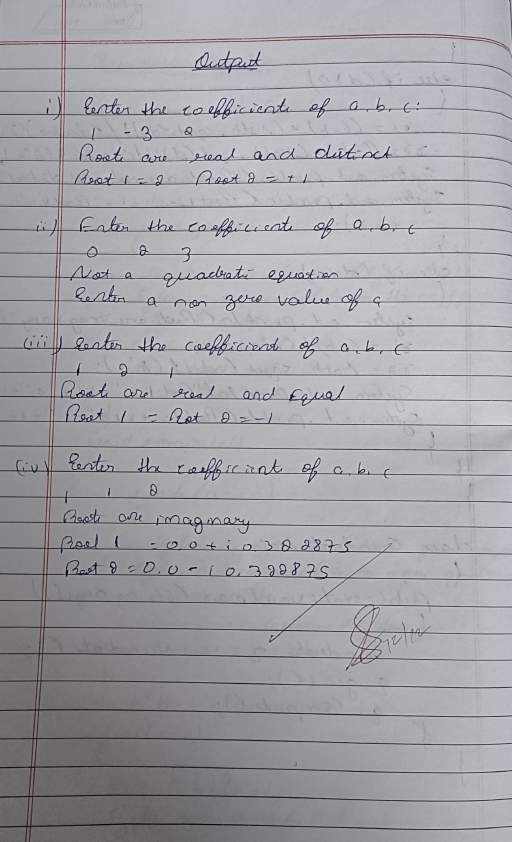 Output
i) Enter the coefficient of a, b, c:
1 - 3 2
Root are real and distinct
Root 1 = 2 Root 2 = +1
ii) Enter the coefficient of a, b, c
0 2 3
Not a quadrati equation.
Enter a non zero value of a
(iii) Enter the coefficient of a, b, c
1 2 1
Root are real and Equal
Root 1 = Rot 2 = -1
(iv) Enter the coefficient of a, b, c
1 1 2
Root are imagnary
Root 1 = 0.0 + i 0.322875
Root 2 = 0.0 - i 0.322875